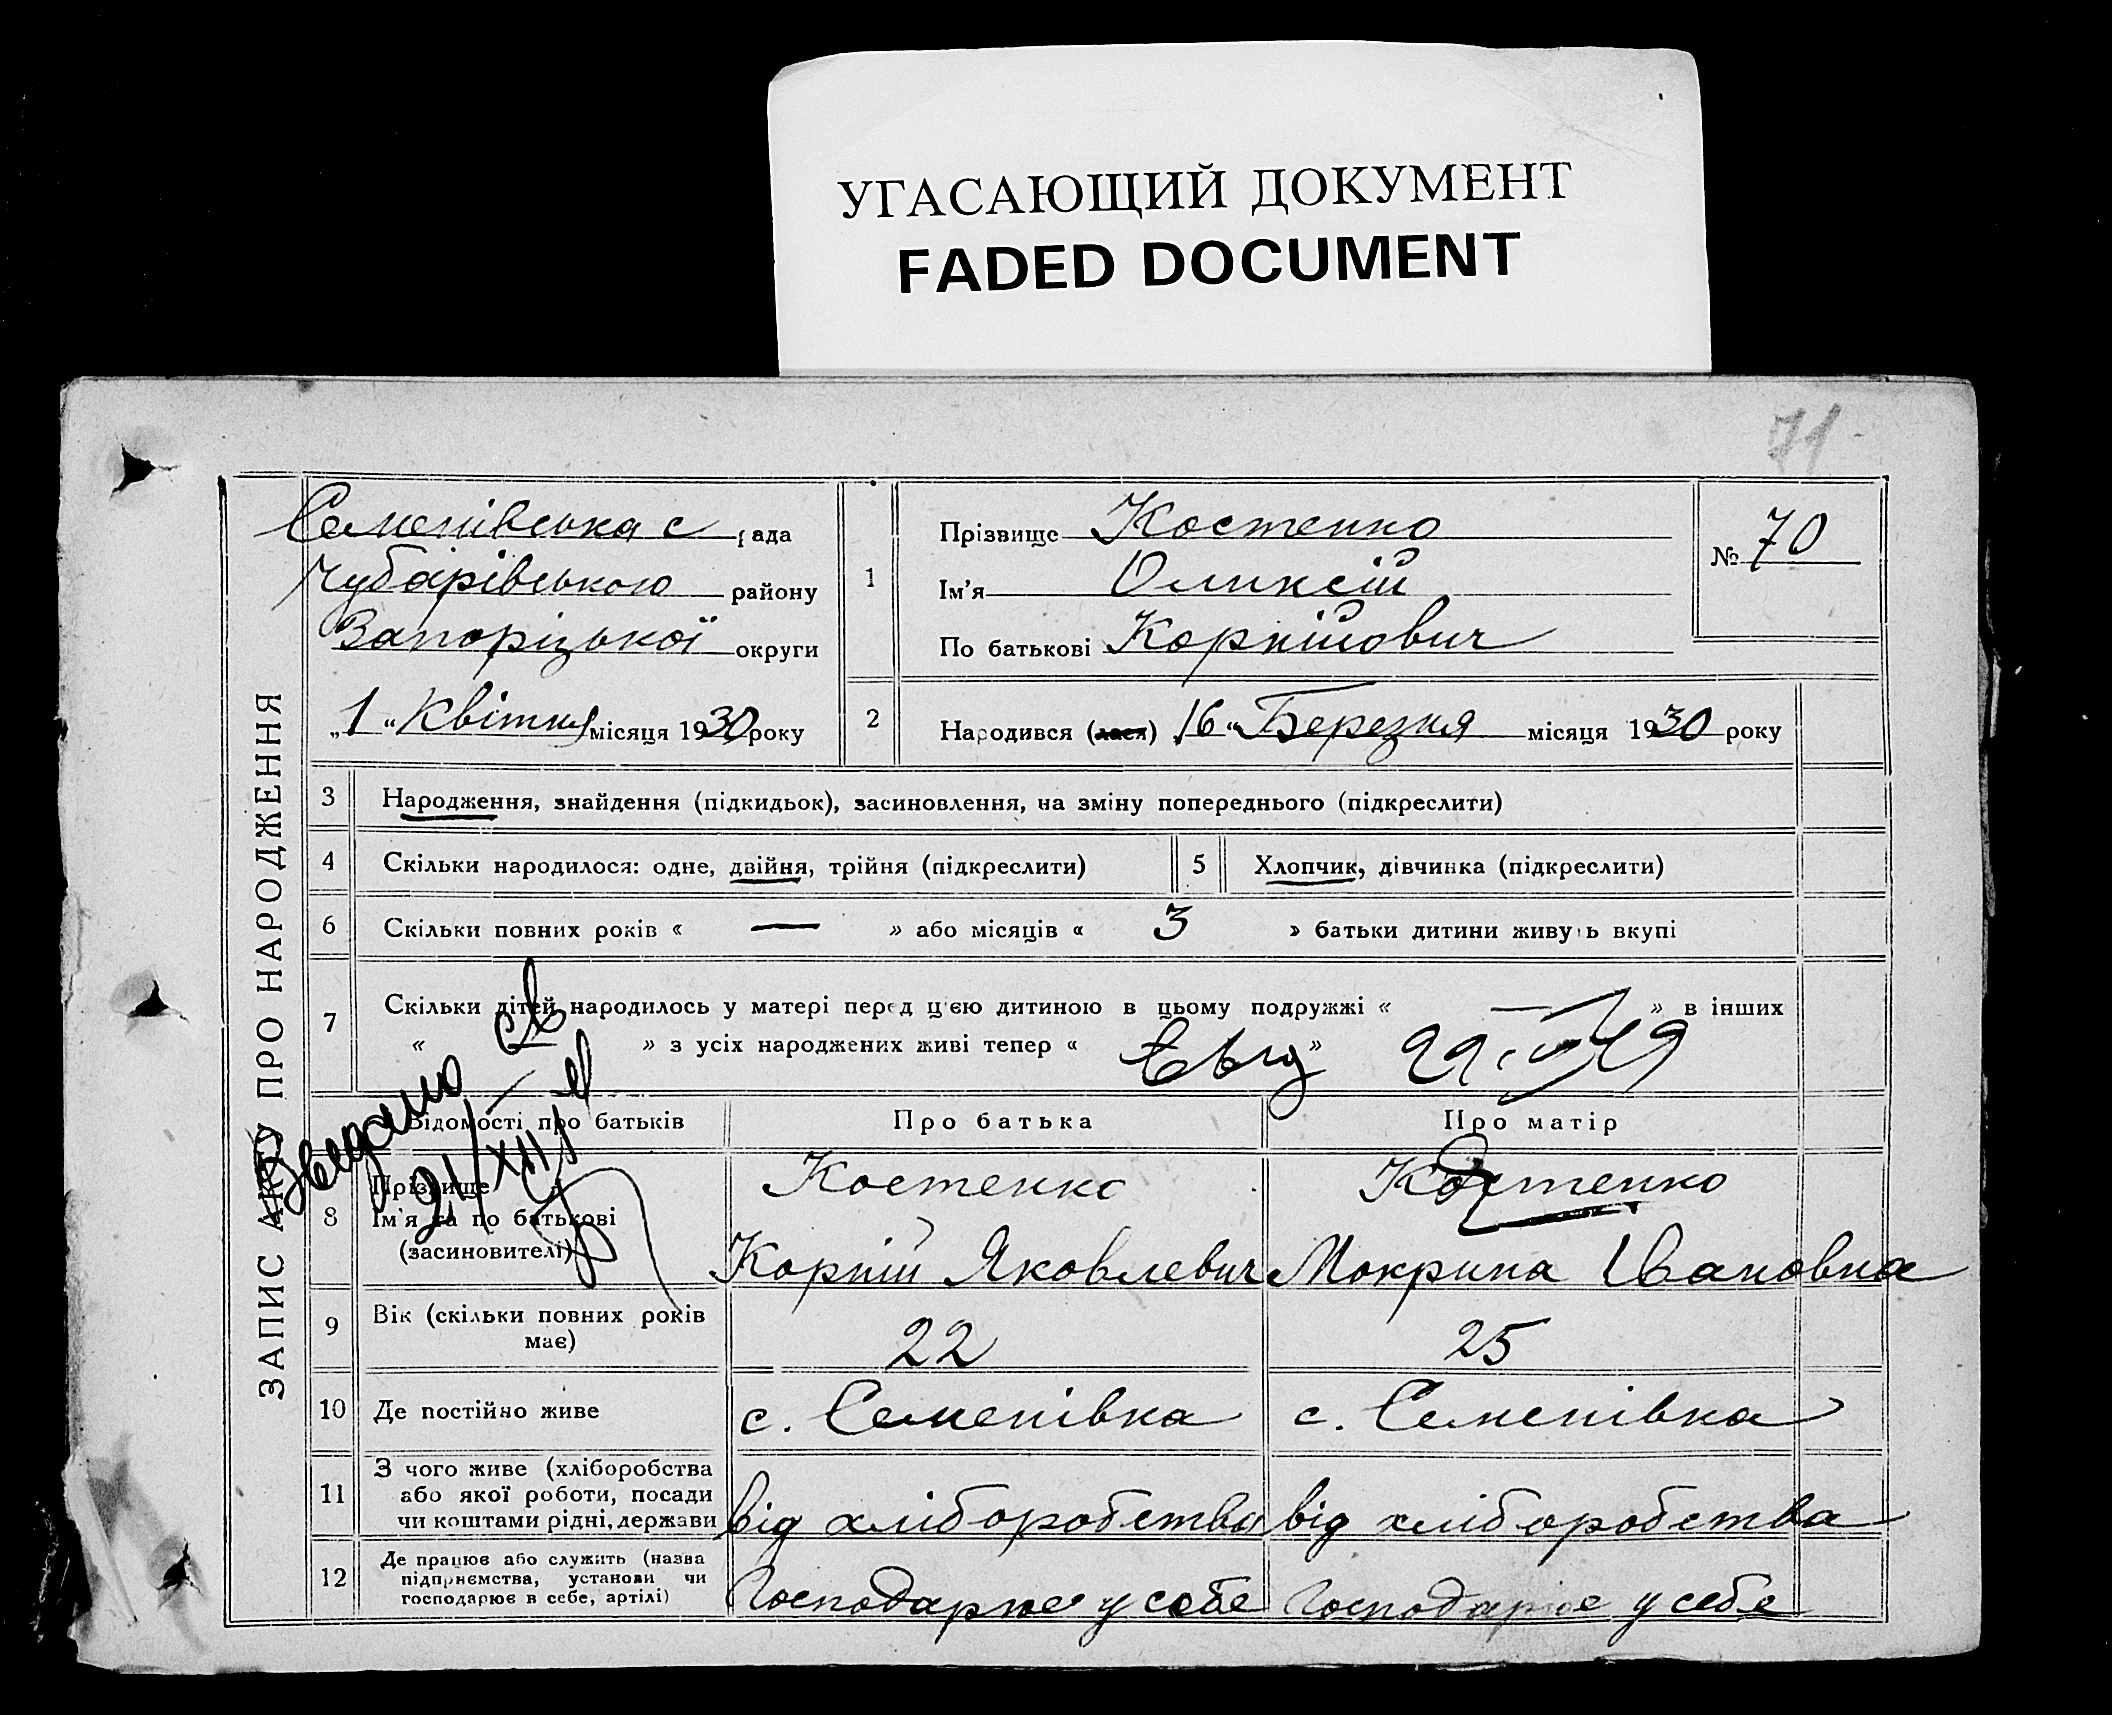 УГАСАЮЩИЙ ДОКУМЕНТ
FADED DOCUMENT
71
ЗАПИС АКТУ ПРО НАРОДЖЕННЯ
Семенівська с рада
Чубарівського району
Запоріцької округи
„1“ Квітня місяця 1930 року
1
Прізвище Костенко
Ім'я Оликсій
По батькові Корнійович
№ 70
2
Народився (лася) 16 “ Березня місяця 1930 року
3 Народження, знайдення (підкидьок), засиновлення, на зміну попереднього (підкреслити)
4 Скільки народилося: одне, двійня, трійня (підкреслити) 5 Хлопчик, дівчинка (підкреслити)
6 Скільки повних років « — » або місяців « 3 » батьки дитини живуть вкупі
7 Скільки дітей народилось у матері перед цією дитиною в цьому подружжі « — » в інших
« » з усіх народжених живі тепер « »
Відомості про батьків Про батька Про матір
21/XII
8 Прізвище Костенко Костенко
Ім'я та по батькові
(засиновителі) Корній Яковлевич Мокрина Івановна
9 Вік (скільки повних років
має) 22 25
10 Де постійно живе с. Семенівка с. Семенівка
11 З чого живе (хліборобства
або якої роботи, посади
чи коштами рідні, держави від хліборобства від хліборобства
12 Де працює або служить (назва
підприємства, установи чи
господарює в себе, артілі) Господарює у себе Господарює у себе